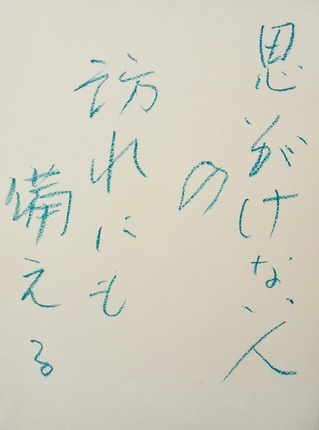 思いがけない人
の
訪れにも
備える